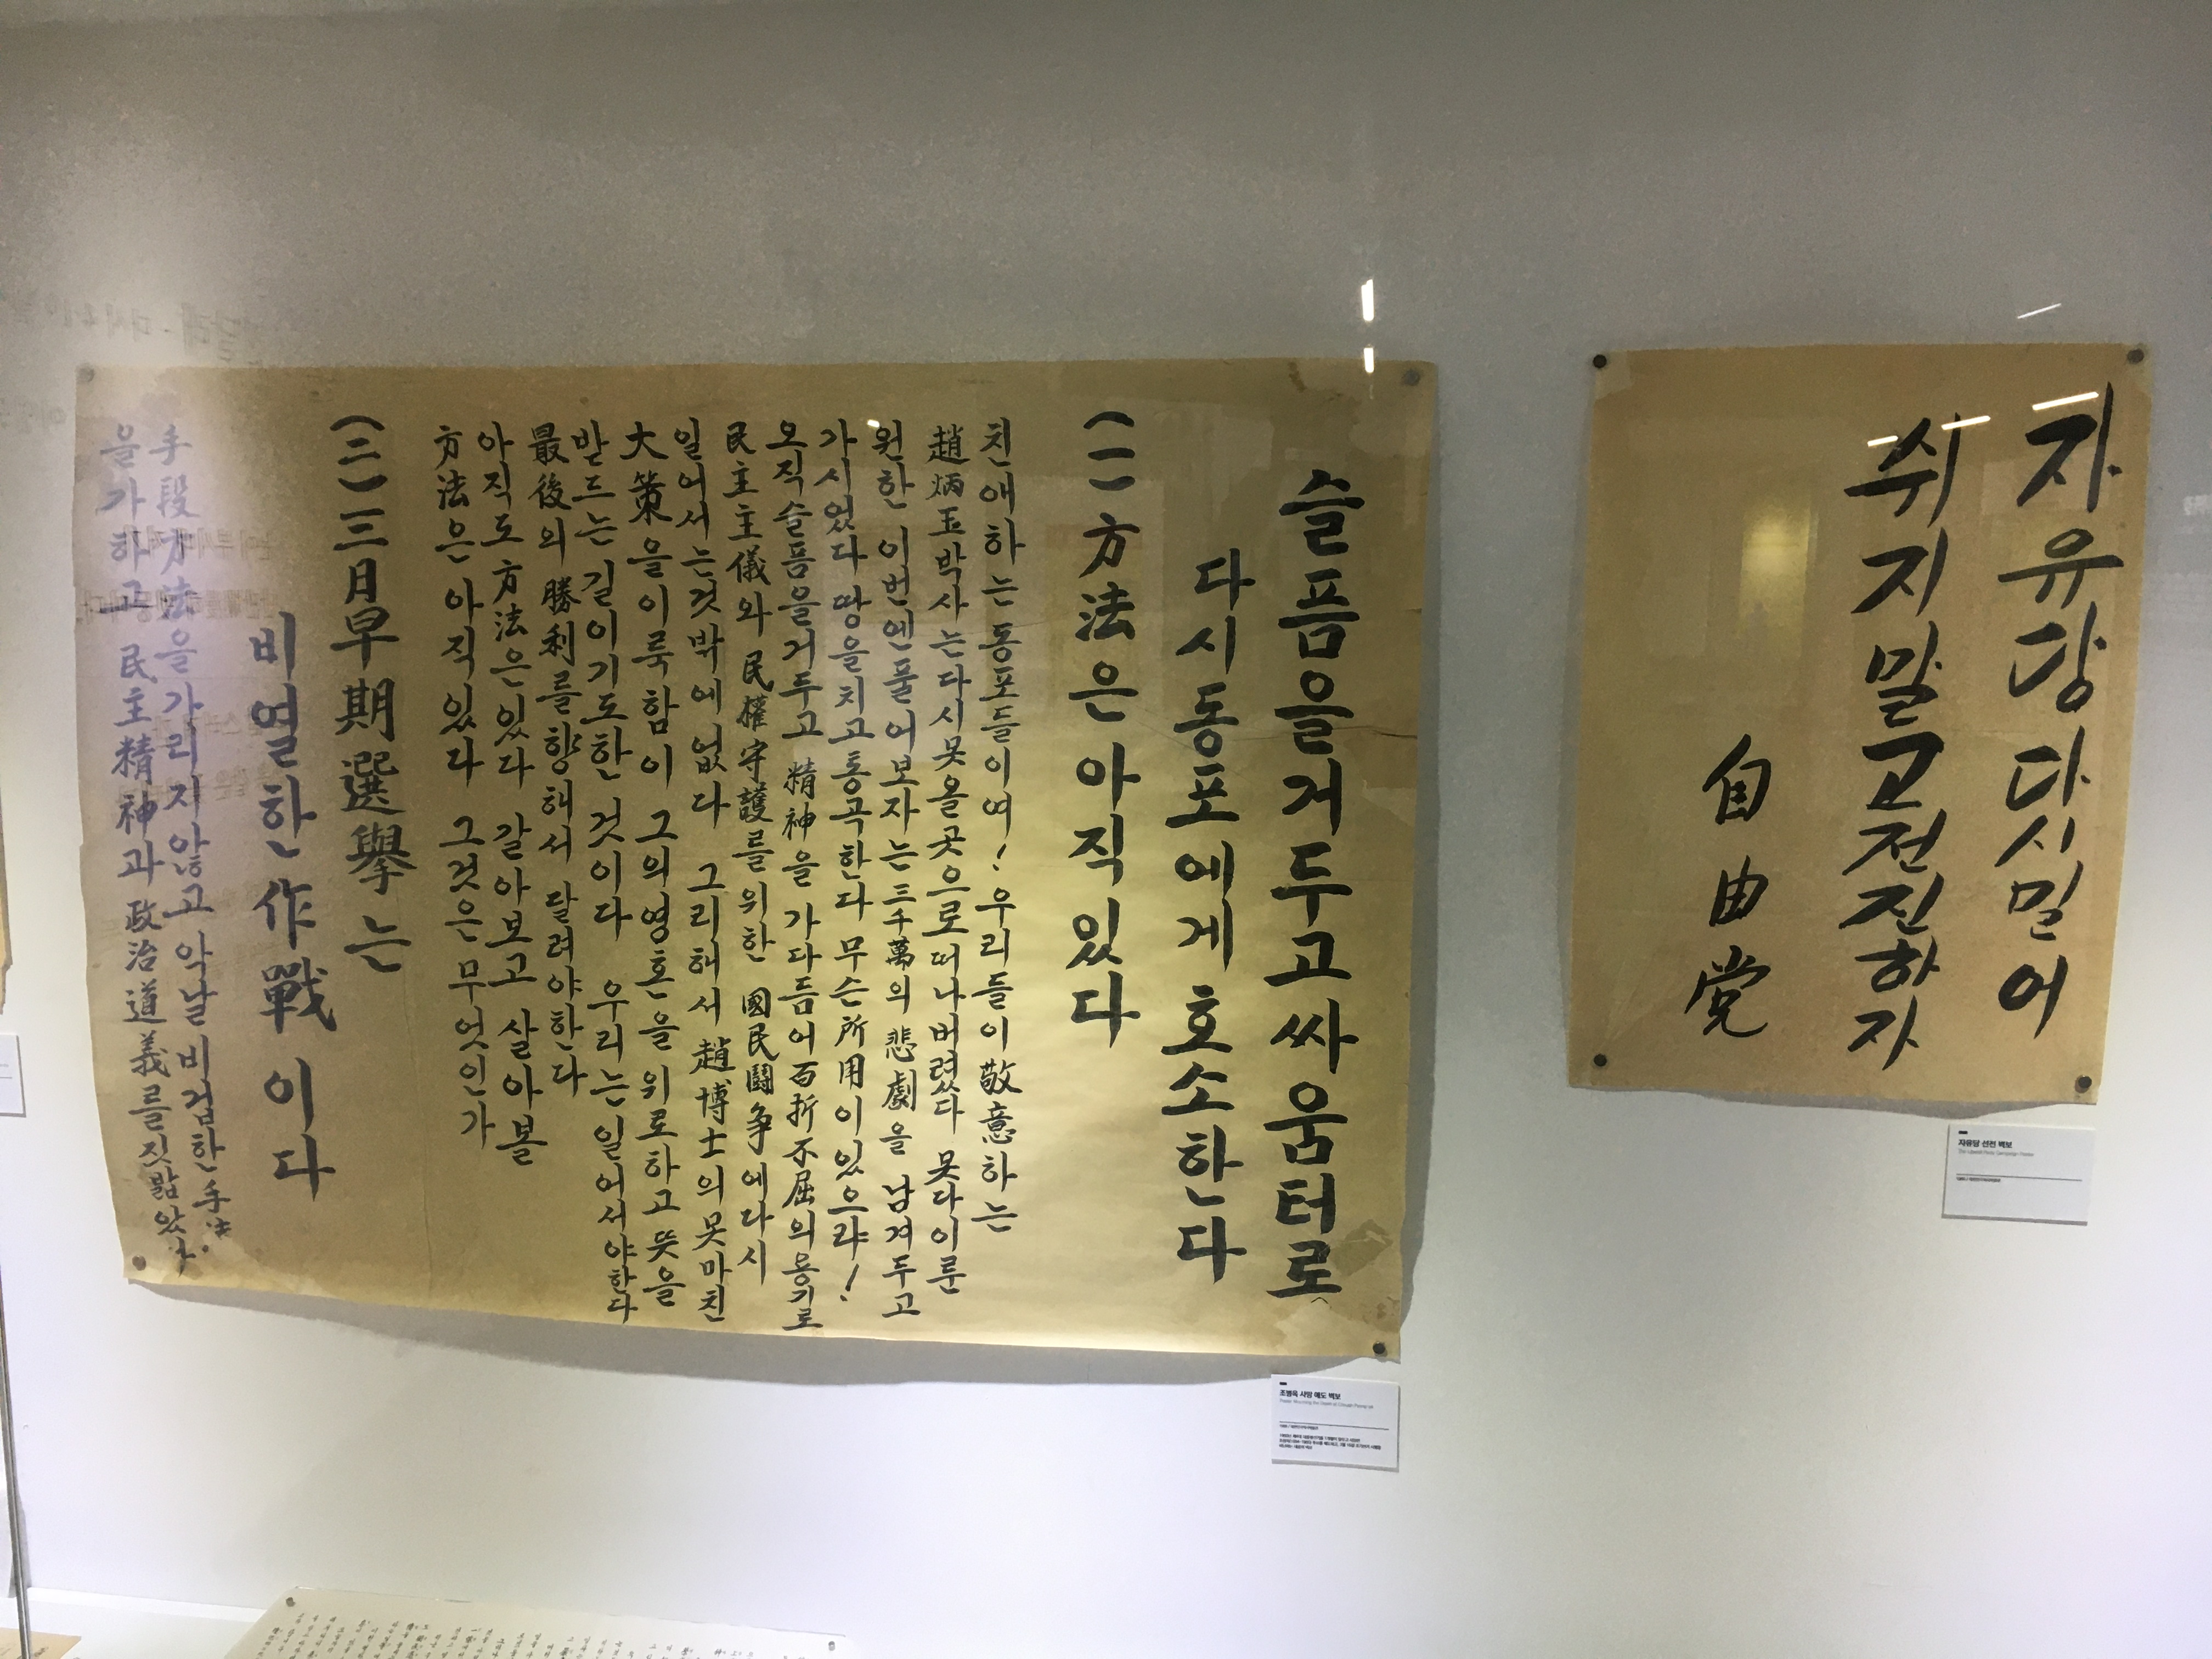 자유당 다시 밀어
쉬지말고 전진하자
自由党
자유당 선전 벽보
슬픔을 거두고 싸움터로
다시 동포에게 호소한다
(一) 方法은 아직 있다
친애하는 동포들이여! 우리들이 敬意하는
趙炳玉박사는 다시 못올 곳으로 떠나버렸다 못다이룬
원한 이번엔 풀어보자는 三千萬의 悲劇을 남겨두고
가시었다 땅을치고 통곡한다 무슨 所用이 있으랴!
오직 슬픔을 거두고 精神을 가다듬어 百折不屈의 용기로
民主主儀와 民權守護를 위한 國民鬪争에 다시
일어서는것 밖에 없다 그리해서 趙博士의 못마친
大策을 이룩함이 그의 영혼을 위로하고 뜻을
받드는 길이기도한 것이다 우리는 일어서야한다
最後의 勝利를 향해서 달려야한다
아직도 方法은 있다 갈아보고 살아볼
方法은 아직 있다 그것은 무엇인가
(二) 三月早期選擧는
비열한 作戰이다
手段方法을 가리지않고 악날 비겁한 手法
을 가하고 民主精神과 政治道義를 짓밟았다.
조병옥 사망 애도 벽보